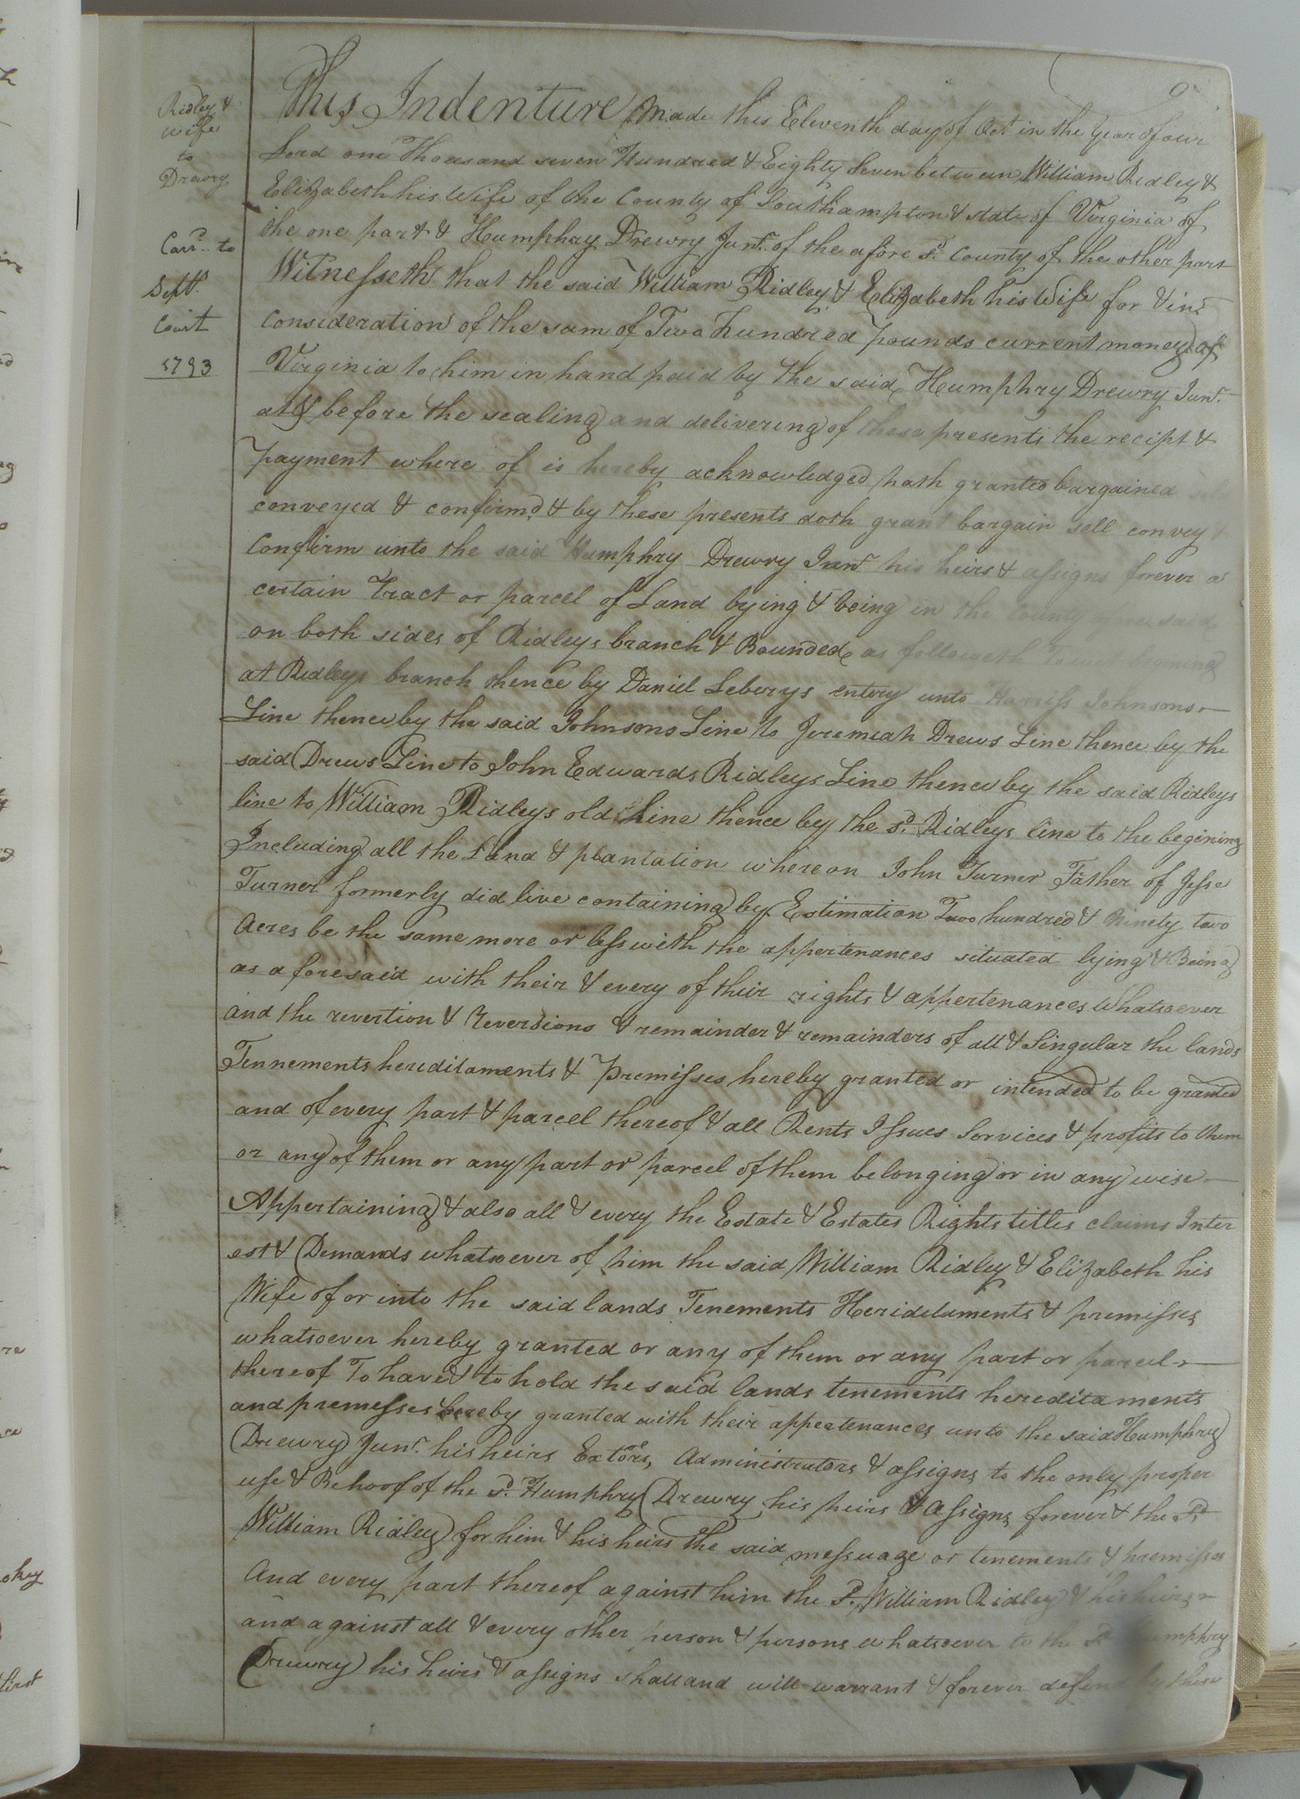 Ridley &
wife
to
Drewry
Carr.d to
Septr.
Court
1793
This Indenture Made this Eleventh day of Oct. in the Year of our
Lord one Thousand seven Hundred & Eighty Seven between William Ridley &
Elizabeth his Wife of the County of Southampton & state of Virginia of
the one part & Humphry Drewry Junr. of the afore sd. County of the other part
Witnesseth that the said William Ridley & Elizabeth his Wife for & in
consideration of the sum of Two hundred pounds current money of
Virginia to him in hand paid by the said Humphry Drewry Junr.
at & before the sealing and delivering of these presents the recipt &
payment where of is hereby acknowledged hath granted bargained
conveyed & confirmd. & by these presents doth grant bargain sell convey &
Confirm unto the said Humphry Drewry Junr. his heirs & assigns forever a
certain Tract or parcel of Land lying & being in the County afore said
on both sides of Ridleys branch & Bounded as followeth
at Ridleys branch thence by Daniel Leberys entery unto Harriss Johnsons
Line thence by the said Johnsons Line to Jeremiah Drews Line thence by the
said Drews Line to John Edwards Ridleys Line thence by the said Ridleys
line to William Ridleys old Line thence by the sd. Ridleys line to the begining
Including all the Land & plantation whereon John Turner Father of Jesse
Turner formerly did live containing by Estimation Two hundred & Ninety two
Acres be the same more or less with the appertenances situated lying & Being
as a foresaid with their & every of their rights & appertenances Whatsoever
and the revertion & Reversions & remainder & remainders of all & Singular the lands
Tennements hereditaments & Premisses hereby granted or intended to be granted
and of every part & parcel thereof & all Rents Issues Services & profits to them
or any of them or any part or parcel of them belonging or in any wise
Appertaining & also all & every the Estate & Estates Rights titles claims Inter
est & Demands whatsoever of him the said William Ridley & Elizabeth his
Wife of or into the said lands Tenements Heriditaments & premisses
whatsoever hereby granted or any of them or any part or parcel
thereof To have & to hold the said lands tenements hereditaments
and premesses hereby granted with their appertenances unto the said Humphry
Drewry Junr. his heirs Extors. Administrators & assigns to the only proper
use & Behoof of the sd. Humphry Drewry his heirs & Assigns forever & the sd.
William Ridley for him & his heirs the said messuage or tenements & premisses
And every part thereof against him the sd. William Ridley & his heirs
and against all & every other person & persons whatsoever to the sd. Humphry
Drewry his heirs & assigns shall and will warrant & forever defend by these